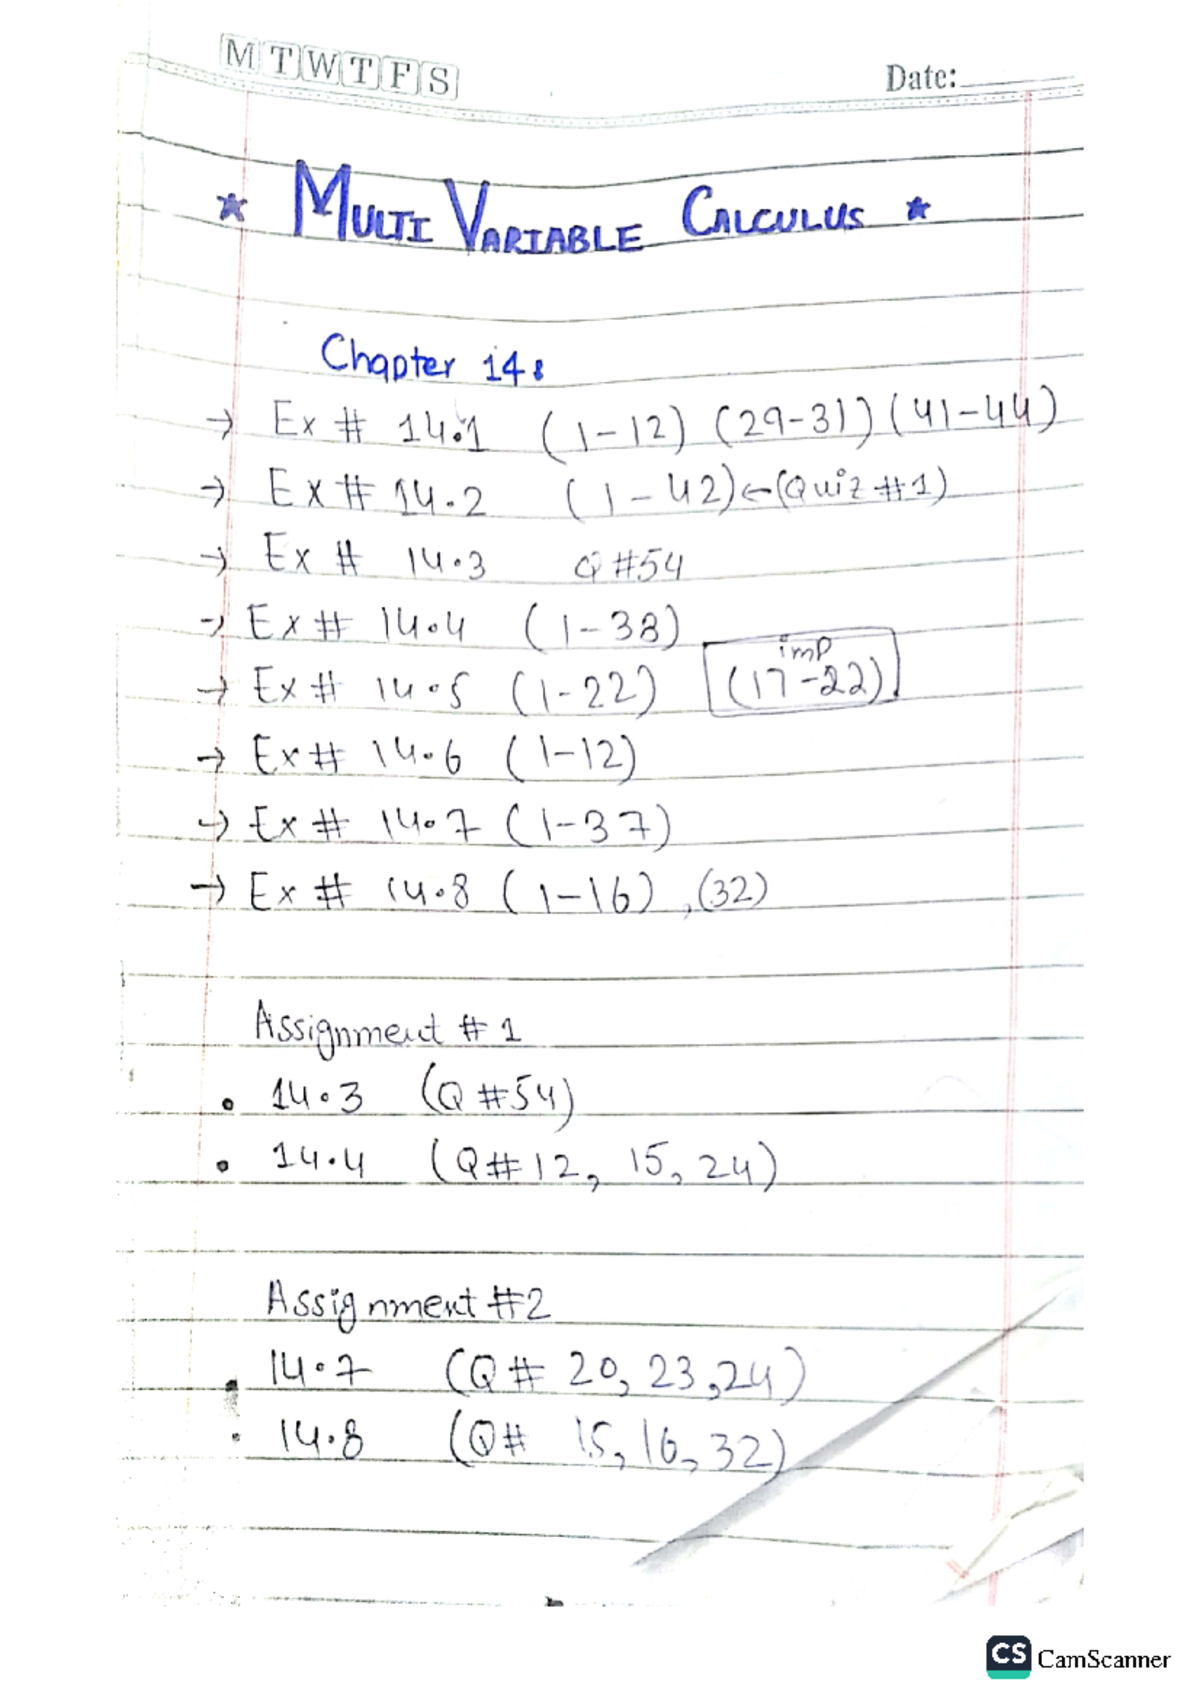 M T W T F S Date:
★ MULTI VARIABLE CALCULUS ★
Chapter 14:
→ Ex # 14.1 (1-12) (29-31) (41-44)
→ Ex # 14.2 (1-42) ← (Quiz #1)
→ Ex # 14.3 Q #54
→ Ex # 14.4 (1-38)
imp
→ Ex # 14.5 (1-22) (17-22)
→ Ex # 14.6 (1-12)
→ Ex # 14.7 (1-37)
→ Ex # 14.8 (1-16), (32)
Assignment # 1
• 14.3 (Q #54)
• 14.4 (Q# 12, 15, 24)
Assignment #2
• 14.7 (Q# 20, 23, 24)
• 14.8 (Q# 15, 16, 32)
CS CamScanner